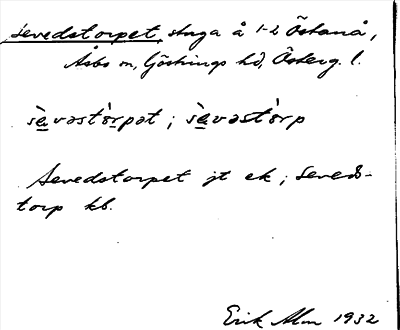 Sevedstorpet, stuga å 1-2 Östanå,
Åsbo sn, Göstrings hd, Österg. l.
sɛ̀vəstórpət ; sɛ̀vəstórp
Sevedstorpet jt ek ; Seveds-
torp kb.
Erik Alm 1932